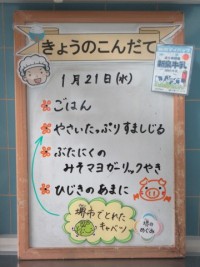 きょうのこんだて
1月21日(水)
ごはん
やさいたっぷりすましじる
ぶたにくの
みそマヨガーリックやき
ひじきのあまに
堺市でとれた
キャベツ